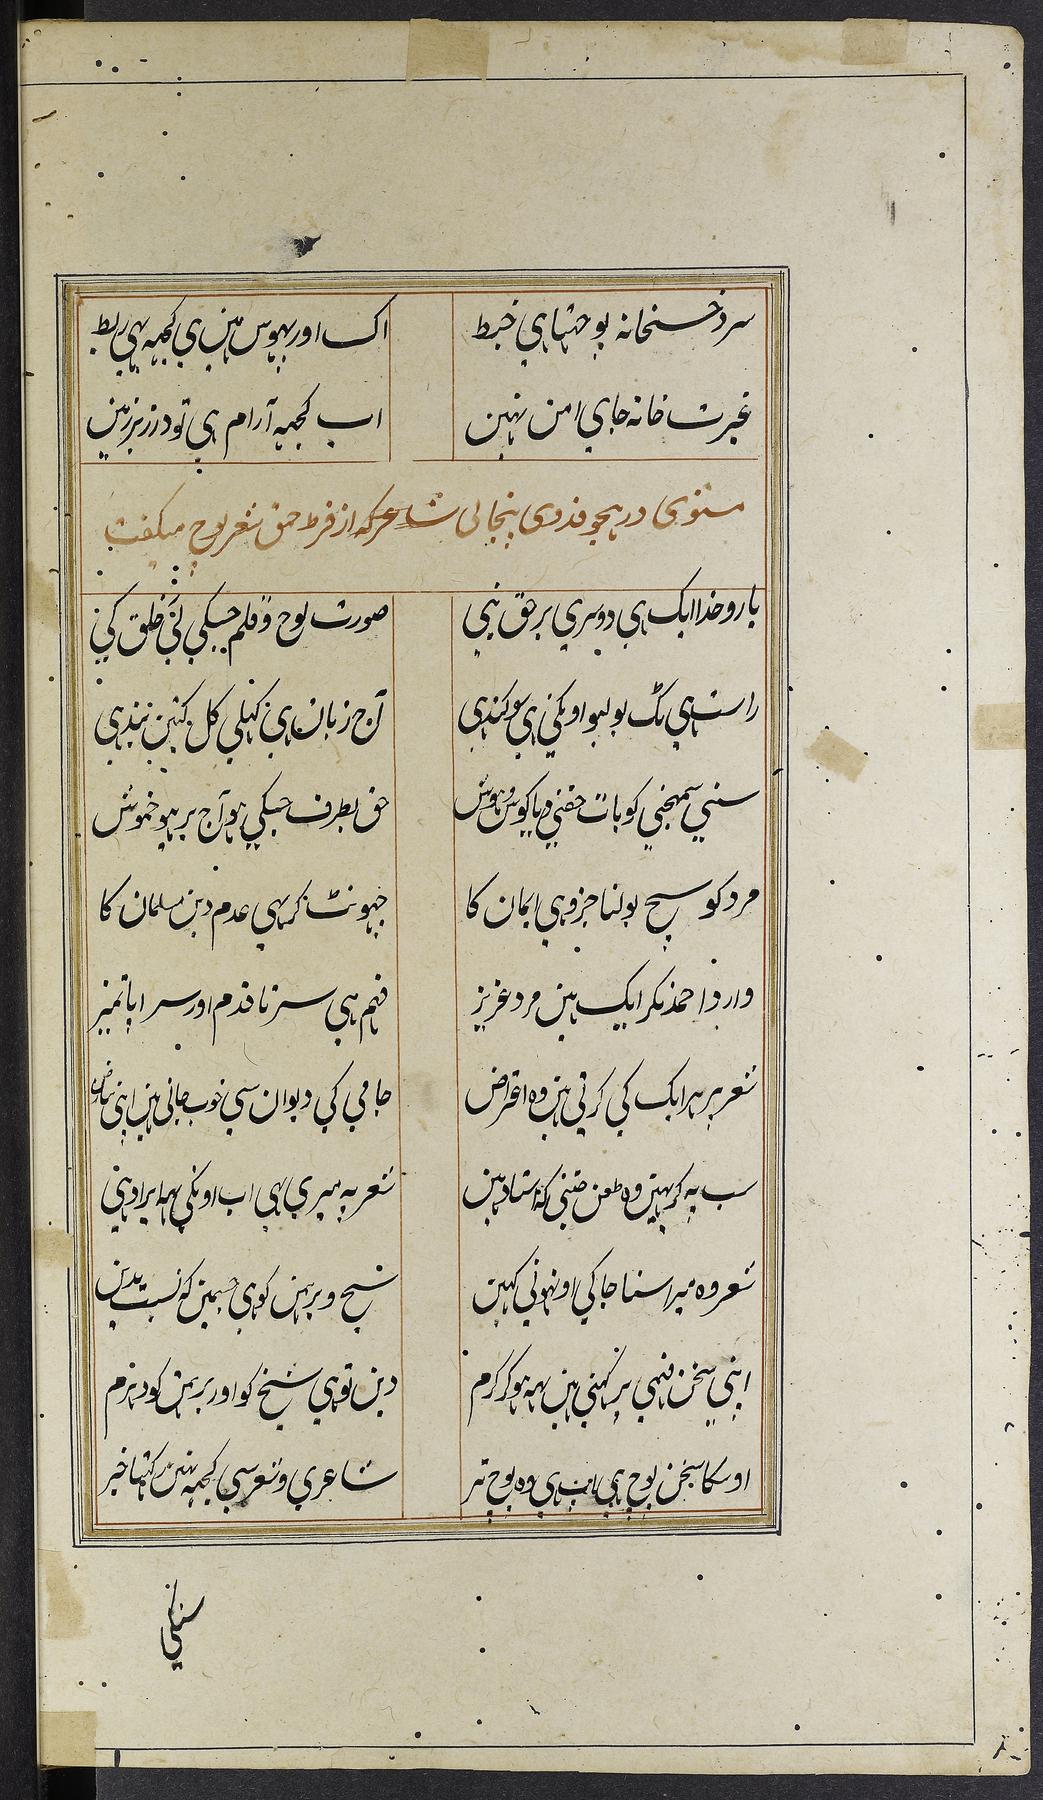 سرد خسخانہ پو حپتا ہی خبط اک اور بہوس مین ہی کجہہ ہی ربط
غیرت خانہ جاي امن نہین اب کجہہ آرام ہی تو درزیر زمین
مثنوی در ہجو فدوی پنجابی شاعر کہ از فرط حمق شعر پوچ میگفت
یارو خدا ایک ہی دوسری برحق نبی صورت لوح و قلم جسکی لئی خلق کی
راست ہی بولیو اونکی ہی سوگند ہی آج زبان ہی کہلی کل کتین بند ہی
سنی سمجہنی کو بات حقنی دیا گوش و ہوش حق بطرف جسکی ہو آج پر ہو خموش
مرد کو سچ بولنا جزو ہی ایمان کا جہونٹ کرہی عدم دین مسلمان کا
وارد احمد نگر ایک ہین مرد عزیز فہم ہی سر تا قدم اور سراپا تمیز
شعر پر ہر ایک کی کرتی ہین وہ اعتراض جامي کی دیوان سی خوب جانی ہین اپنی بیاض
سب پہ کرہین وہ طعن جتنی کہ استاد ہین شعر پہ میری بہی اب اونکی یہہ ایراد ہین
شعر وہ میرا سنا جاکی اونہونی کہین شیخ و برہمن کو ہی جسمین کہ نسبت بدین
اپنی سخن فہمی پر کہتی ہین یہہ ہو کر کرم دین تو ہی شیخ کو اور برہمن کو دہرم
اوسکا سخن پوچ ہی آپ ہی وہ پوچ تر شاعری و شعر سی کجہہ نہین رکہتا خبر
سنکي